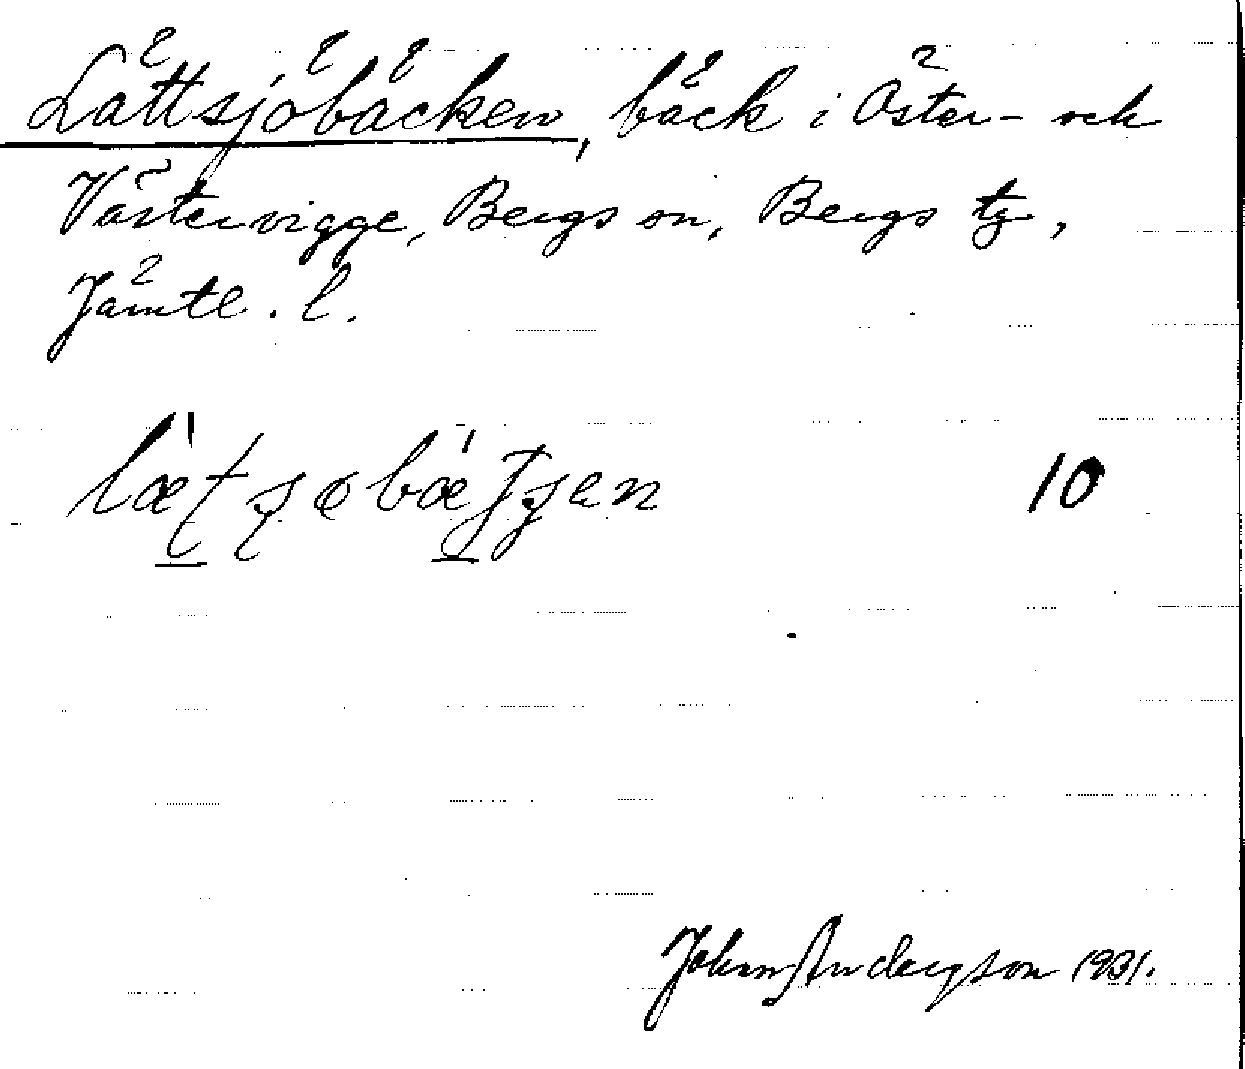 Lättsjöbäcken, bäck i Öster- och
Västervigge, Bergs sn, Bergs tg,
Jämtl. l.
10
John Andersson 1931.